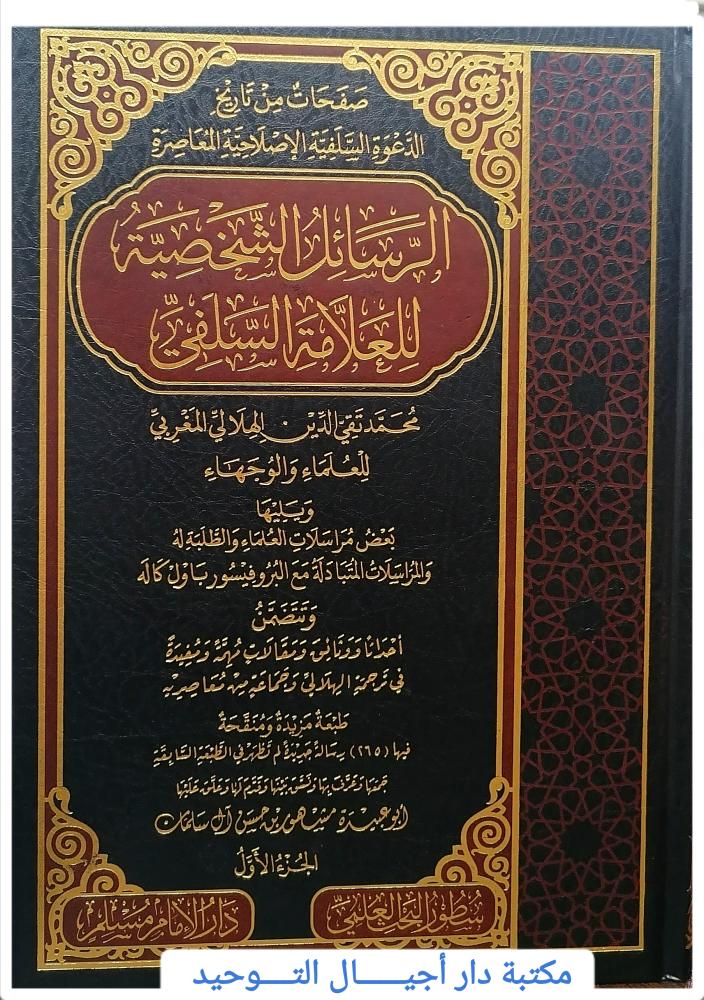 صَفَحَاتٌ مِنْ تَارِيْخِ
الدَّعْوَةِ السَّلَفِيَّةِ الإِصْلَاحِيَّةِ المُعَاصِرَةِ
الرَّسَائِلُ الشَّخْصِيَّةُ
لِلْعَلَّامَةِ السَّلَفِيِّ
مُحَمَّد تَقِيِّ الدِّيْنِ الهِلَالِيِّ المَغْرِبِيِّ
لِلْعُلَمَاءِ وَالوُجَهَاءِ
وَيَلِيْهَا
بَعْضُ مُرَاسَلَاتِ العُلَمَاءِ وَالطَّلَبَةِ لَهُ
وَالمُرَاسَلَاتُ المُتَبَادَلَةُ مَعَ البُرُوفِيسُور بَاوْل كَالَه
وَتَتَضَمَّنُ
أَحْدَاثًا وَوَثَائِقَ وَمَقَالَاتٍ مُهِمَّةً وَمُفِيْدَةً
فِي تَرْجَمَةِ الهِلَالِيِّ وَجَمَاعَةٍ مِنْ مُعَاصِرِيْهِ
طَبْعَةٌ مَزِيْدَةٌ وَمُنَقَّحَةٌ
فِيهَا (٢٦٥) رِسَالَةً جَدِيْدَةً لَمْ تَظْهَرْ فِي الطَّبْعَةِ السَّابِقَةِ
جَمَعَهَا وَعَرَّفَ بِهَا وَنَسَّقَ بَيْنَهَا وَقَدَّمَ لَهَا وَعَلَّقَ عَلَيْهَا
أبو عبيدة مشهور بن حسن آل سلمان
الجُزْءُ الأَوَّلُ
سُطُورُ البَحْثِ العِلْمِيِّ
دَارُ الإِمَامِ مُسْلِمٍ
مكتبة دار أجيـــال التـــوحيد